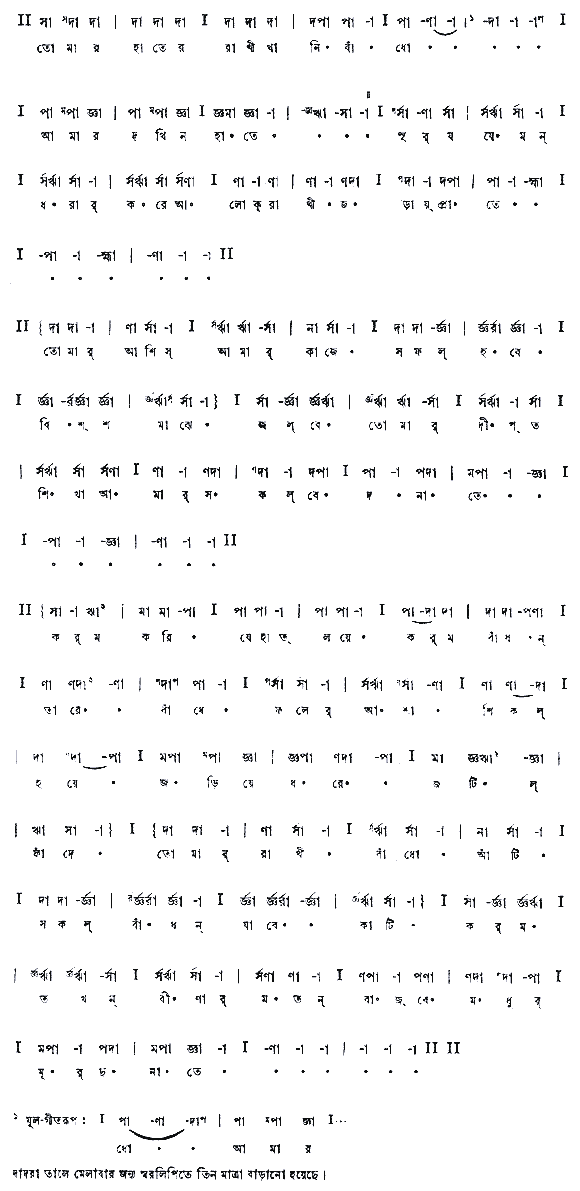 II সা ᵖদা দা | দা দা দা I দা দা দা | দপা পা -া I পা -ণা -া | -দা -া -াᵖ I
তো মা র হা তে র রা খী খা নি • বাঁ • ধো • • • • •
I পা ᵐপা জ্ঞা | পা ᵐপা জ্ঞা I জ্ঞমা জ্ঞা -া | -জ্ঞঋা -সা -া I ᵖর্সা -ণা র্সা | র্সঋা র্সা -া I
আ মা র দ খি ন হা • তে • • • • সূ র্ য যে • ম ন্
I র্সঋা র্সা -া | র্সঋা র্সা র্সণা I ণা -া ণা | ণা -া ণদা I ᵖদা -া দপা | পা -া -হ্মা I
ধ • রা র্ ক • রে আ • লো ক্ রা খী • জ • ড়া য়্ প্রা • তে • •
I -পা -া -হ্মা | -ণা -া -া II
• • • • • •
II { দা দা -া | ণা র্সা -া I ᵟঋা ঋা -র্সা | না র্সা -া I দা দা -র্জ্ঞা | র্জ্ঞর্রা র্জ্ঞা -া I
তো মা র্ আ শি স্ আ মা র্ কা জে • স ফ ল্ হ • বে •
I র্জ্ঞা -র্রর্জ্ঞা র্জ্ঞা | ঋা র্সা -া } I র্সা -র্জ্ঞা র্জ্ঞঋা | ঋা ঋা -র্সা I র্সঋা -া র্সা I
বি • শ্ ব মা ঝে • জ্ব ল্ বে • তো মা র্ দী • প্ ত
| র্সঋা র্সা র্সণা I ণা -া ণদা | ᵖদা -া দপা I পা -া পদা | মপা -া -জ্ঞা I
শি • খা আ • মা র্ স • ক ল্ বে • দ • না • তে • • •
I -পা -া -জ্ঞা | -ণা -া -া II
• • • • • •
II { সা -া ঋা | মা মা -পা I পা পা -া | পা পা -া I পা -দা দা | দা দা -পণা I
ক র্ ম ক রি • যে হা ত্ ল য়ে • ক র্ ম বাঁ ধ • ন্
I ণা ণদা -ণা | ᵖদাᵖ পা -া I র্সা র্সা -া | র্সঋা র্সা -ণা I ণা ণা -দা I
তা রে • • বাঁ ধে • ফ লে র্ আ • শা • শি ক ল্
| দা দা -পা I মপা ᵐপা জ্ঞা | জ্ঞপা ণদা -পা I মা জ্ঞঋা -জ্ঞা |
হ য়ে • জ • ড়ি য়ে ধ • রে • • জ টি • ল্
| ঋা সা -া } I { দা দা -া | ণা র্সা -া I ঋা র্সা -া | না র্সা -া I
ফাঁ দে • তো মা র্ রা খী • বাঁ ধো • আঁ টি •
I দা দা -র্জ্ঞা | র্জ্ঞর্রা র্জ্ঞা -া I র্জ্ঞা র্জ্ঞর্রা -র্জ্ঞা | ঋা র্সা -া } I র্সা -র্জ্ঞা র্জ্ঞঋা I
স ক ল্ বাঁ • ধ ন্ যা বে • • কা টি • ক র্ ম •
| ঋা ঋা -র্সা I র্সঋা র্সা -া | র্সণা ণা -া I ণপা -া পণা | ণদা দা -পা I
ত খ ন্ বী • ণা র্ ম • ত ন্ বা • জ্ বে • ম • ধু র্
I মপা -া পদা | মপা জ্ঞা -া I -ণা -া -া | -া -া -া II II
মূ • র্ ছ • না • তে • • • • • • •
১ মূল-গীতরূপ : I পা -ণা -দাᵖ | পা ᵐপা জ্ঞা I…
ধো • • আ মা র
দাদরা তালে মেলাবার জন্য স্বরলিপিতে তিন মাত্রা বাড়ানো হয়েছে।